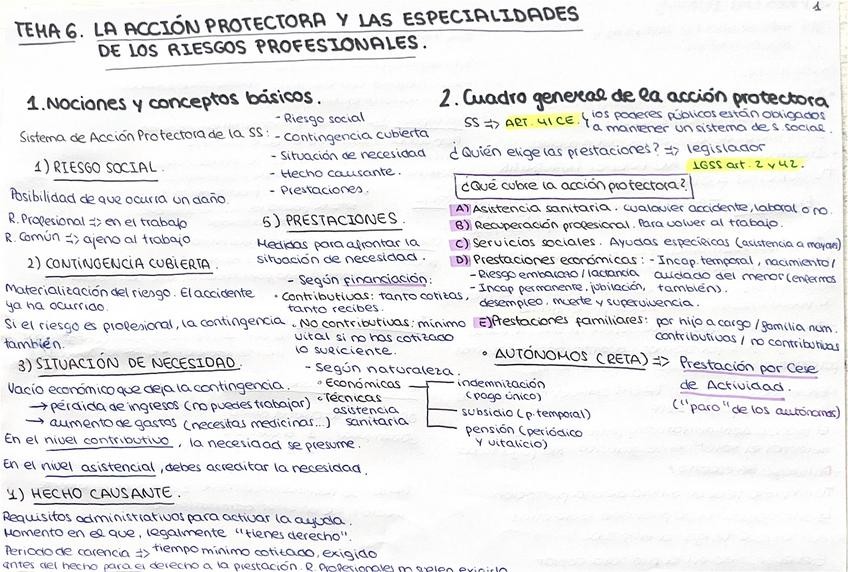 1
TEMA 6. LA ACCIÓN PROTECTORA Y LAS ESPECIALIDADES
DE LOS RIESGOS PROFESIONALES.
1. Nociones y conceptos básicos.
Sistema de Acción Protectora de la SS:
- Riesgo social
- Contingencia cubierta
- Situación de necesidad
- Hecho causante.
- Prestaciones.
1) RIESGO SOCIAL.
Posibilidad de que ocurra un daño.
R. Profesional => en el trabajo
R. Común => ajeno al trabajo
2) CONTINGENCIA CUBIERTA.
Materialización del riesgo. El accidente
ya ha ocurrido.
Si el riesgo es profesional, la contingencia
también.
3) SITUACIÓN DE NECESIDAD.
Vacío económico que deja la contingencia.
→ pérdida de ingresos (no puedes trabajar)
→ aumento de gastos (necesitas medicinas...)
En el nivel contributivo, la necesidad se presume.
En el nivel asistencial, debes acreditar la necesidad.
4) HECHO CAUSANTE.
Requisitos administrativos para activar la ayuda.
Momento en el que, legalmente "tienes derecho".
Periodo de carencia => tiempo mínimo cotizado, exigido
antes del hecho para el derecho a la prestación. R. Profesionales no suelen exigirlo
5) PRESTACIONES.
Medidas para afrontar la
situación de necesidad.
- Según financiación:
• Contributivas: tanto cotizas,
tanto recibes.
• No contributivas: mínimo
vital si no has cotizado
lo suficiente.
- Según naturaleza.
• Económicas
indemnización
(pago único)
subsidio (p. temporal)
pensión (periódico
y vitalicio)
• Técnicas
asistencia
sanitaria
2. Cuadro general de la acción protectora
SS => ART. 41 CE. los poderes públicos están obligados
a mantener un sistema de s. social.
¿Quién elige las prestaciones? => legislador
LGSS art. 2 y 42.
¿Qué cubre la acción protectora?
A) Asistencia sanitaria. cualquier accidente, laboral o no.
B) Recuperación profesional. Para volver al trabajo.
C) Servicios sociales. Ayudas específicas (asistencia a mayores)
D) Prestaciones económicas: - Incap. temporal, nacimiento/
- Riesgo embarazo/lactancia cuidado del menor (enfermos
- Incap permanente, jubilación, también).
desempleo, muerte y supervivencia.
E) Prestaciones familiares: por hijo a cargo / familia num.
contributivas / no contributivas
• AUTÓNOMOS (RETA) => Prestación por Cese
de Actividad.
("paro" de los autónomos)